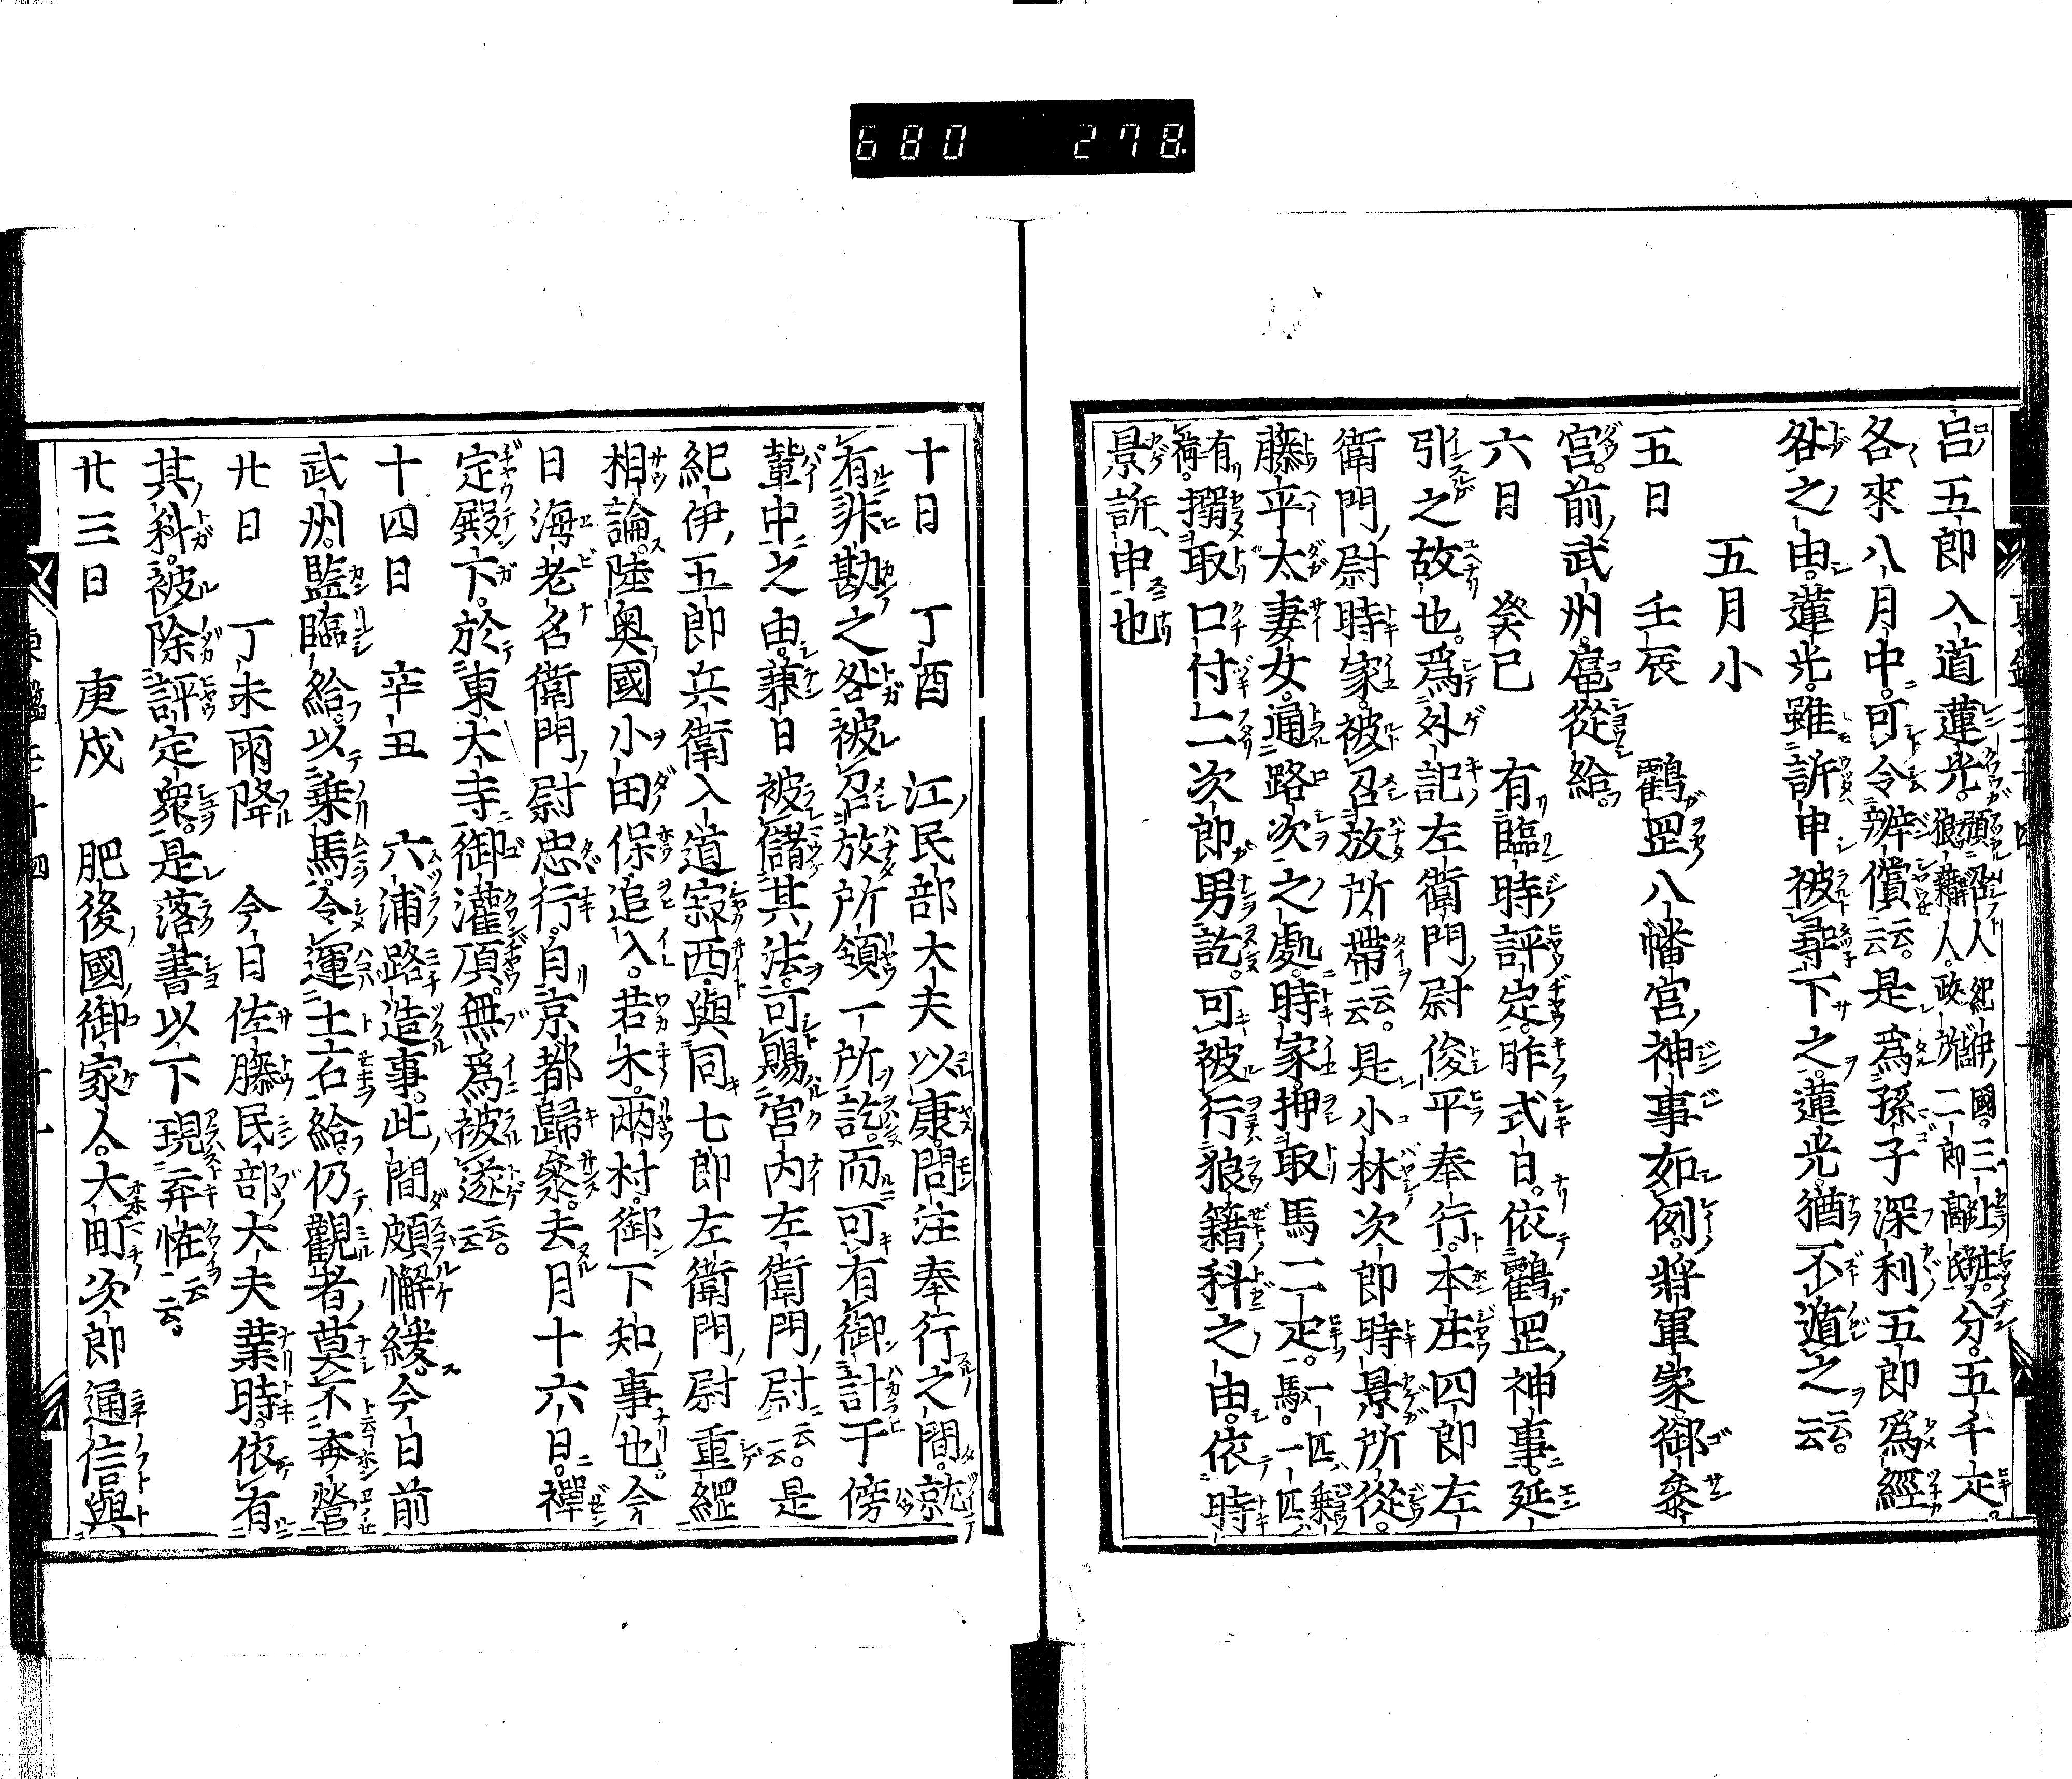 680 278
呂五郎入道蓮光。預召人紀伊國。三上庄。分。五千疋。
狼藉人。政所二郎。離氏
各來八月中。可令辨償云云。是爲孫子深利五郎爲經
咎之由。蓮光。雖訴申被尋下之。蓮光。猶不遁之云云。
五月小
五日 壬辰 鶴罡八幡宮神事如例。將軍家御參
宮。前武州。扈從給。
六日 癸巳 有臨時評定。昨式日。依鶴罡神事。延
引之故也。爲外記左衛門尉俊平奉行。本庄四郎左
衛門尉時家。被召放所帶云云。是小林次郎時景所從。
藤平太妻女。通路次之處。時家。押取馬二疋。一匹八乘
駄。一匹八
有荷。搦取口付二次郎男訖。可被行狼籍科之由。依時
景訴申也
十日 丁酉 江民部大夫以康。問注奉行之間。就
有非勘之咎被召放所領一所訖。而可有御計于傍
輩中之由。兼日被儲其法。可賜宮内左衛門尉云云。是
紀伊五郎兵衛入道寂西與同七郎左衛門尉重經
相論。陸奥國小田保追入。若木。兩村。御下知事也。今
日海老名衛門尉忠行。自京都歸參。去月十六日。禪
定殿下。於東大寺御灌頂。無爲被遂云云。
十四日 辛丑 六浦路造事。此間頗懈緩。今日前
武州。監臨給。以乗馬。令運土石給。仍觀者莫不奔營
廿日 丁未雨降 今日佐藤民部大夫業時。依有
其科。被除評定衆。是落書以下現奔恠云云。
廿三日 庚戌 肥後國御家人。大町次郎通信與